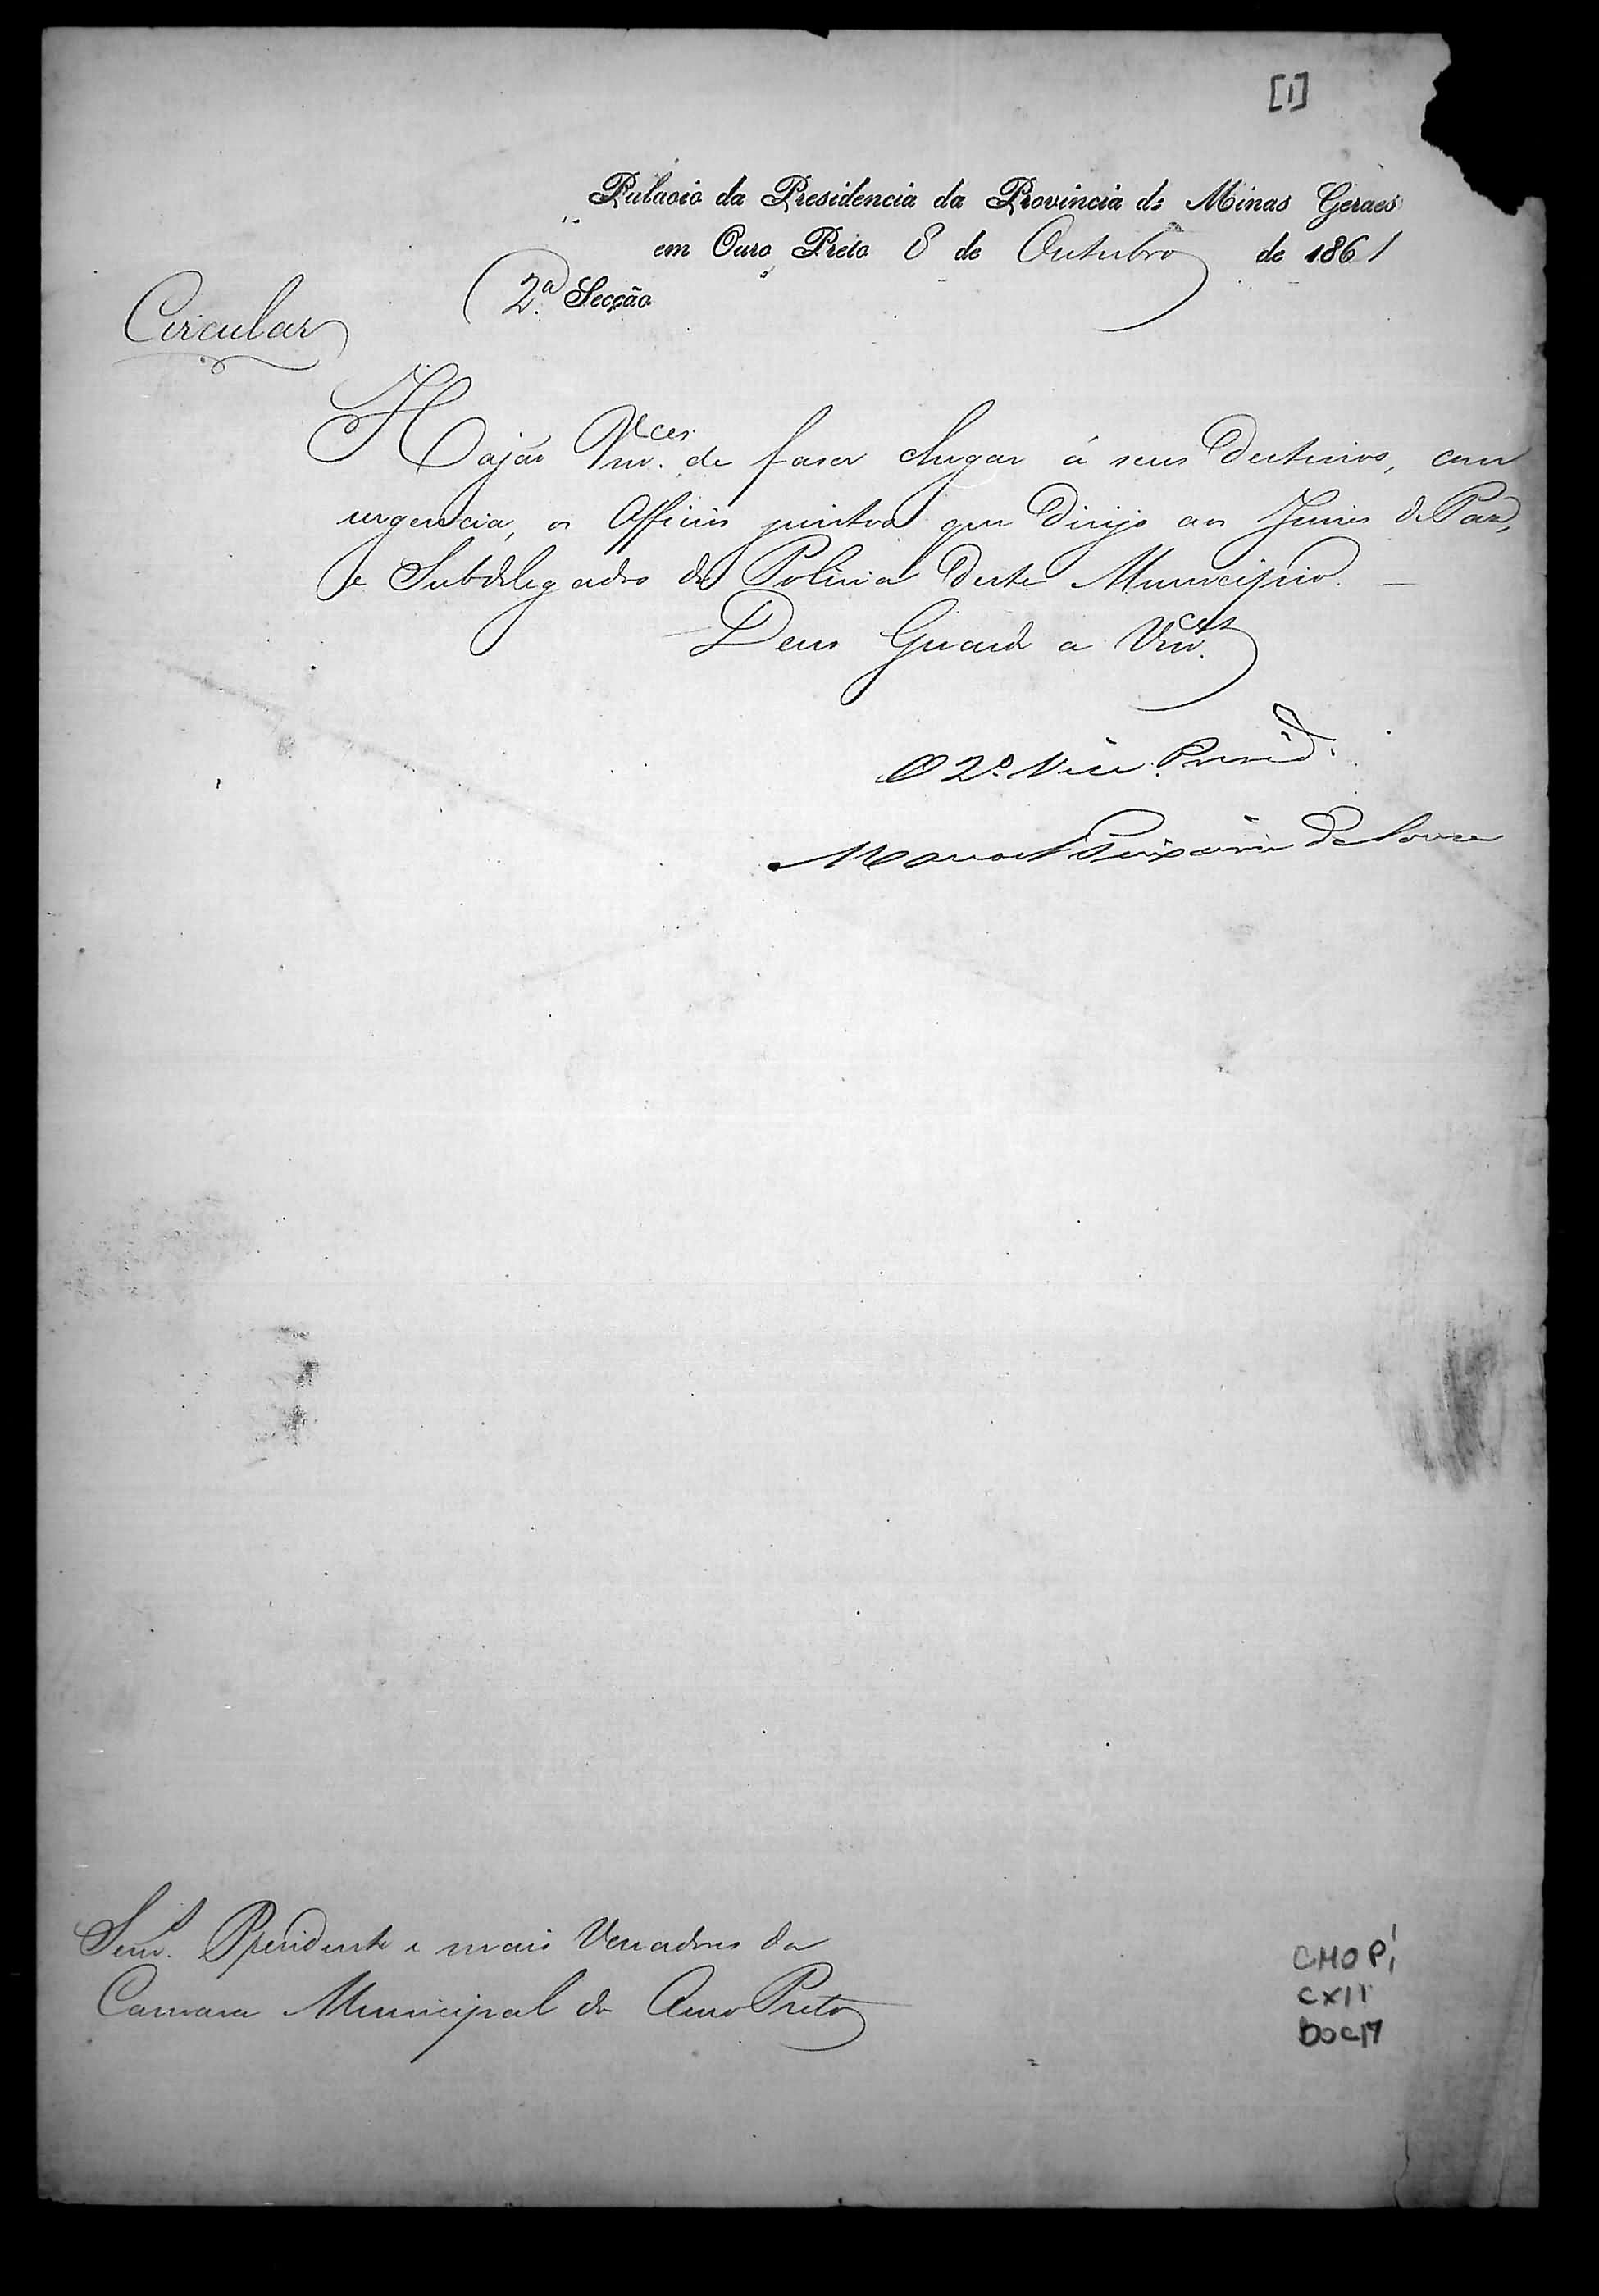 [1]
Palacio da Presidencia da Provincia de Minas Geraes
em Ouro Preto 8 de Outubro de 1861
2.ª Secção
Circular
Hajão Vm.ces de faser chegar á seus destinos, com
urgencia, os Officios juntos que dirijo aos Juises de Paz,
e Subdelegados de Policia deste Municipio.
Deus Guarde a Vm.ces
O 2.º Vice Presid.
Manoel Teixeira de Souza
Senr.s Presidente e mais Vereadores da
Camara Municipal do Ouro Preto
CMOP
CX11
DOC17